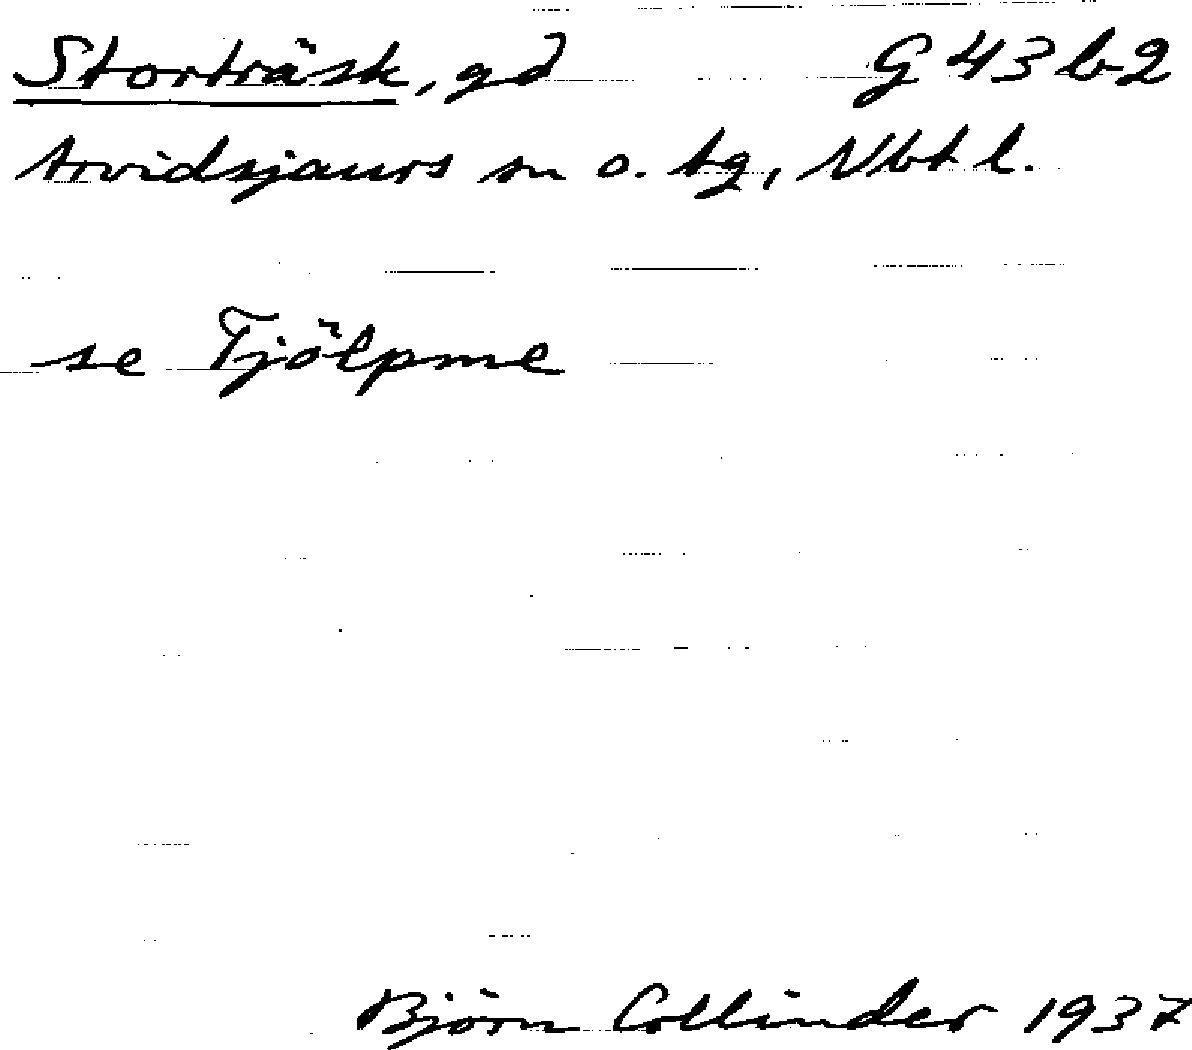 Storträsk, gd G 43 b 2
Arvidsjaurs sn o. tg, Nbt l.
se Tjålpme
Björn Collinder 1937